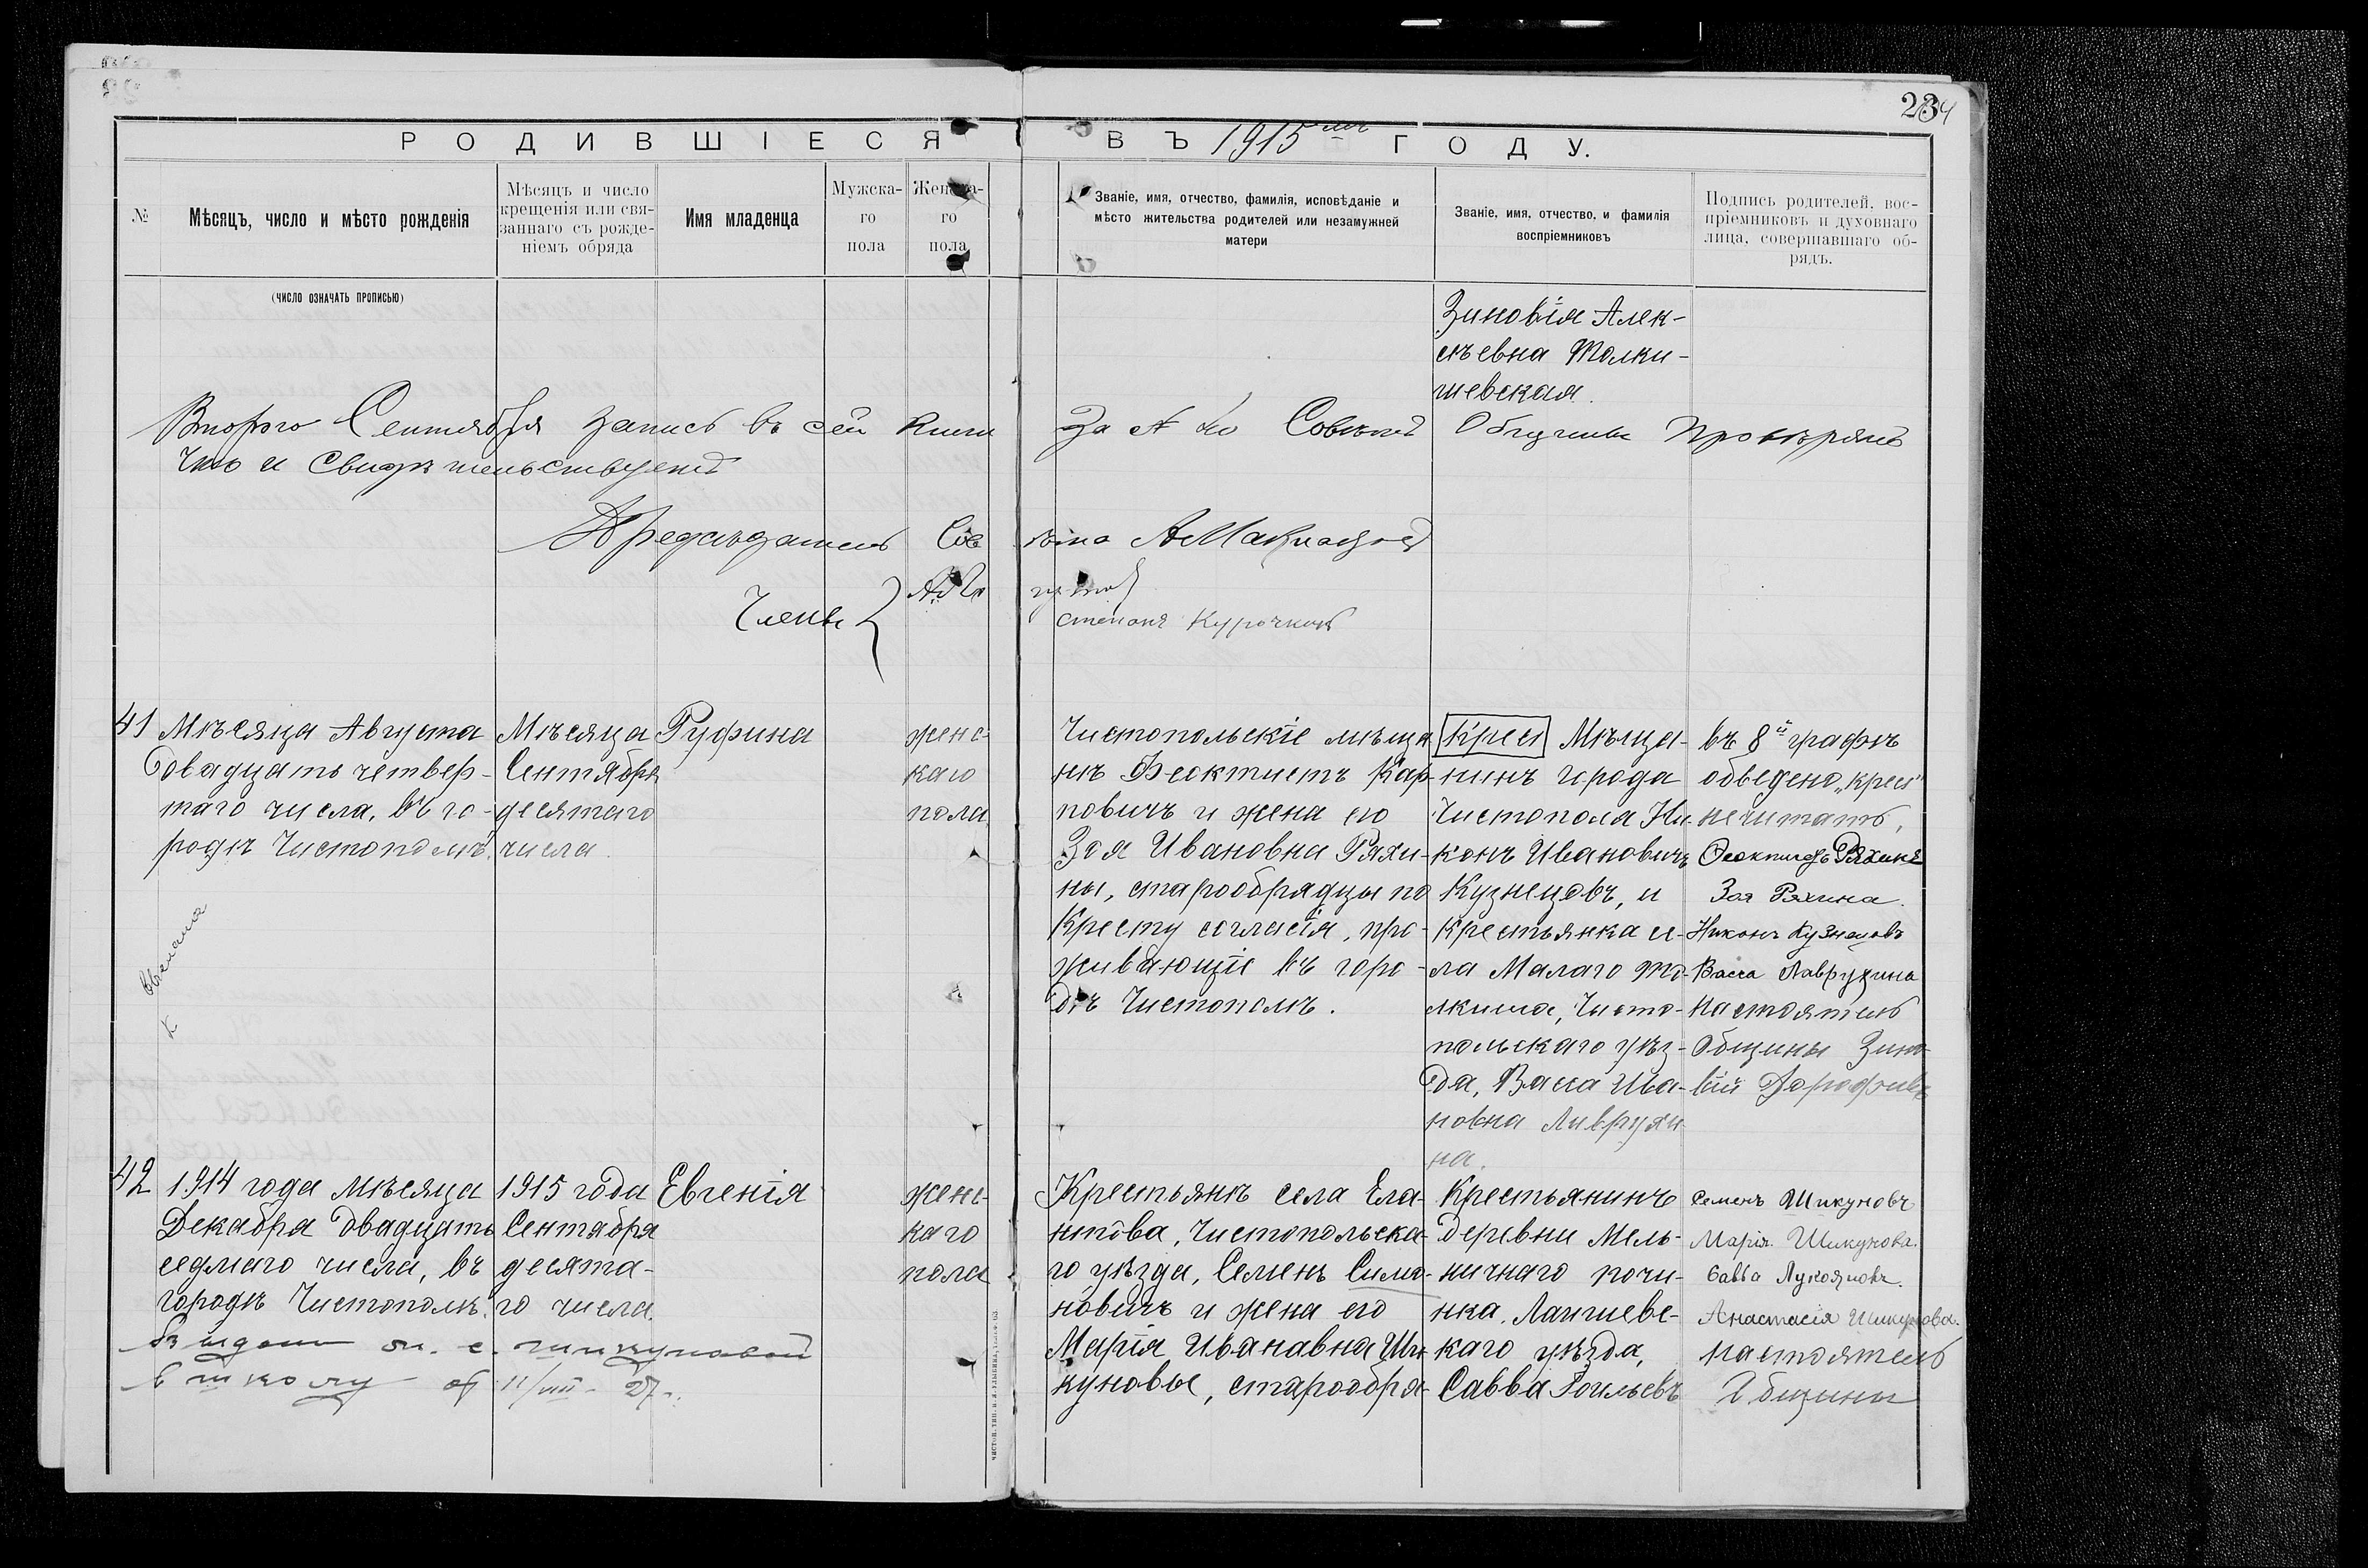 234
РОДИВШІЕСЯ ВЪ 1915 мъ ГОДУ.
№
Мѣсяцъ, число и мѣсто рожденія
Мѣсяцъ и число
крещенія или свя-
заннаго съ рожде-
ніемъ обряда
Имя младенца
Мужска-
го
пола
Женска-
го
пола
Званіе, имя, отчество, фамилія, исповѣданіе и
мѣсто жительства родителей или незамужней
матери
Званіе, имя, отчество, и фамилія
воспріемниковъ
Подпись родителей, вос-
пріемниковъ и духовнаго
лица, совершавшаго об-
рядъ.
(число означать прописью)
Зиновія Алек-
сѣевна Толки-
шевская.
Второго Сентября запись въ сей книги за А Совѣтъ Общины провѣрялъ
что и свидѣтельствуетъ
Предсѣдатель Совѣта
Члены
Степанъ Курочкинъ
41
Мѣсяца Августа
двадцать четвер-
таго числа, въ го-
родѣ Чистополѣ.
Мѣсяца
Сентября
десятаго
числа.
Руфина
женс-
каго
пола
Чистопольскіе мѣща-
нѣ Феоктистъ Кар-
повичъ и жена его
Зоя Ивановна Ряхи-
ны, старообрядцы по
Кресту согласія, про-
живающіе въ горо-
дѣ Чистополѣ.
Крес Мѣща-
нинъ города
Чистополя Ни-
конъ Ивановичъ
Кузнецовъ, и
крестьянка се-
ла Малаго То-
лкиша, Чисто-
польскаго уѣз-
да, Васса Ива-
новна Лаврухи
на.
въ 8й графѣ
обведено „крес"
нечитать,
Феоктистъ Ряхинъ
Зоя Ряхина.
Никонъ Кузнецовъ
Васса Лаврухина
Настоятель
Общины Зино-
вій Дорофеевъ
42
1914 года мѣсяца
Декабря двадцать
седмаго числа, въ
городѣ Чистополѣ.
1915 года
Сентября
десята-
го числа.
Евгенія
женс-
каго
пола
Крестьянѣ села Ела-
нтова, Чистопольска-
го уѣзда, Семенъ Симо-
новичъ и жена его
Марія Ивановна Ши-
куновы, старообря-
Крестьянинъ
деревни Мель-
ничнаго почи-
нка, Лаишевс-
каго уѣзда,
Савва
Семенъ Шикуновъ
Марія Шикунова.
Савва Лукояновъ.
Анастасія Шикунова.
Настоятель
Общины
Выдан с. Шикуновой
в школу от 11/VIII - 27 г.